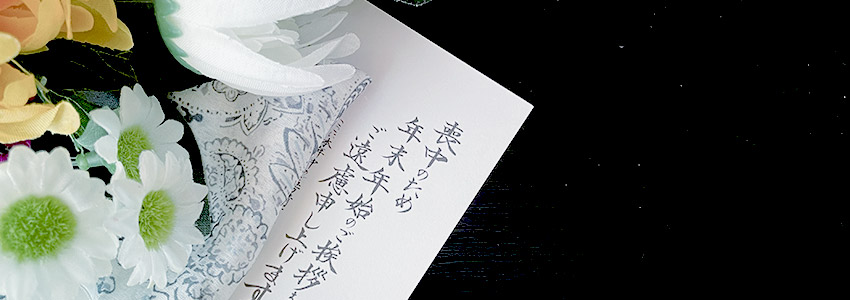 喪中のため
年末年始のご挨拶
ご遠慮申し上げます